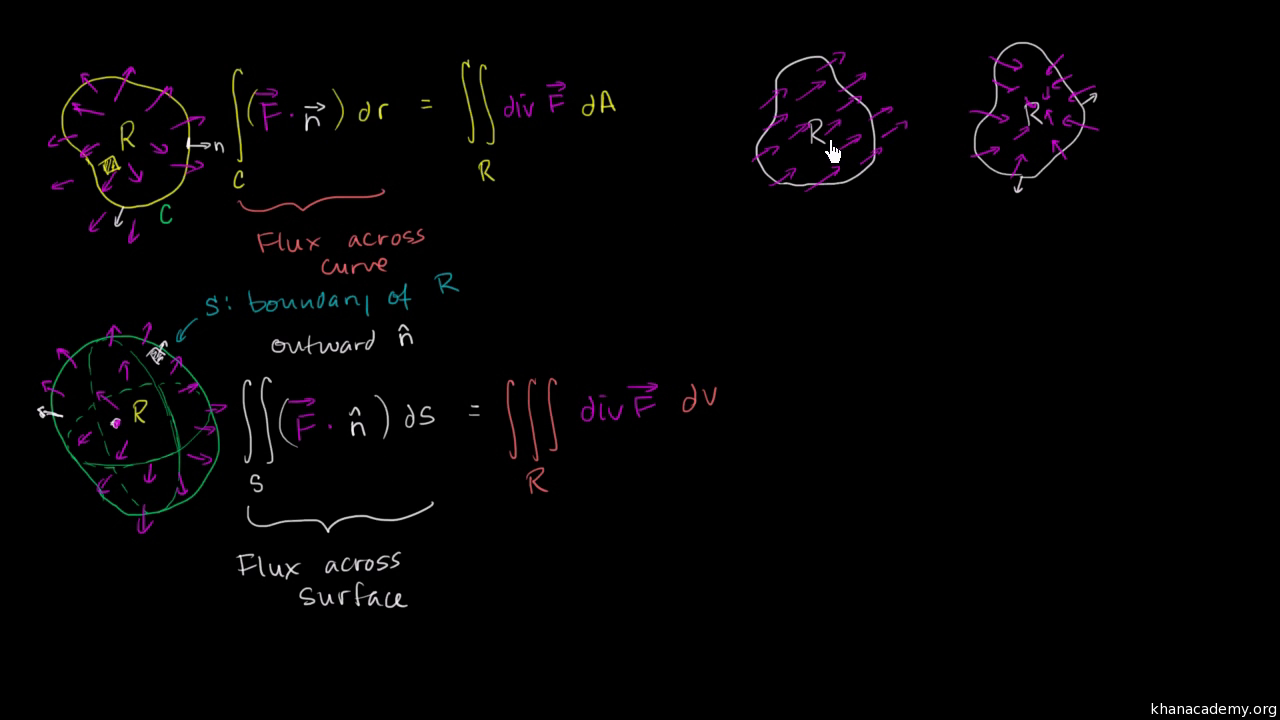 R
n
C
∫_C (F⃗ · n⃗) dr = ∬_R div F⃗ dA
Flux across
curve
S: boundary of R
outward n̂
R
∬_S (F⃗ · n̂) dS = ∭_R div F⃗ dV
Flux across
surface
R
R
khanacademy.org